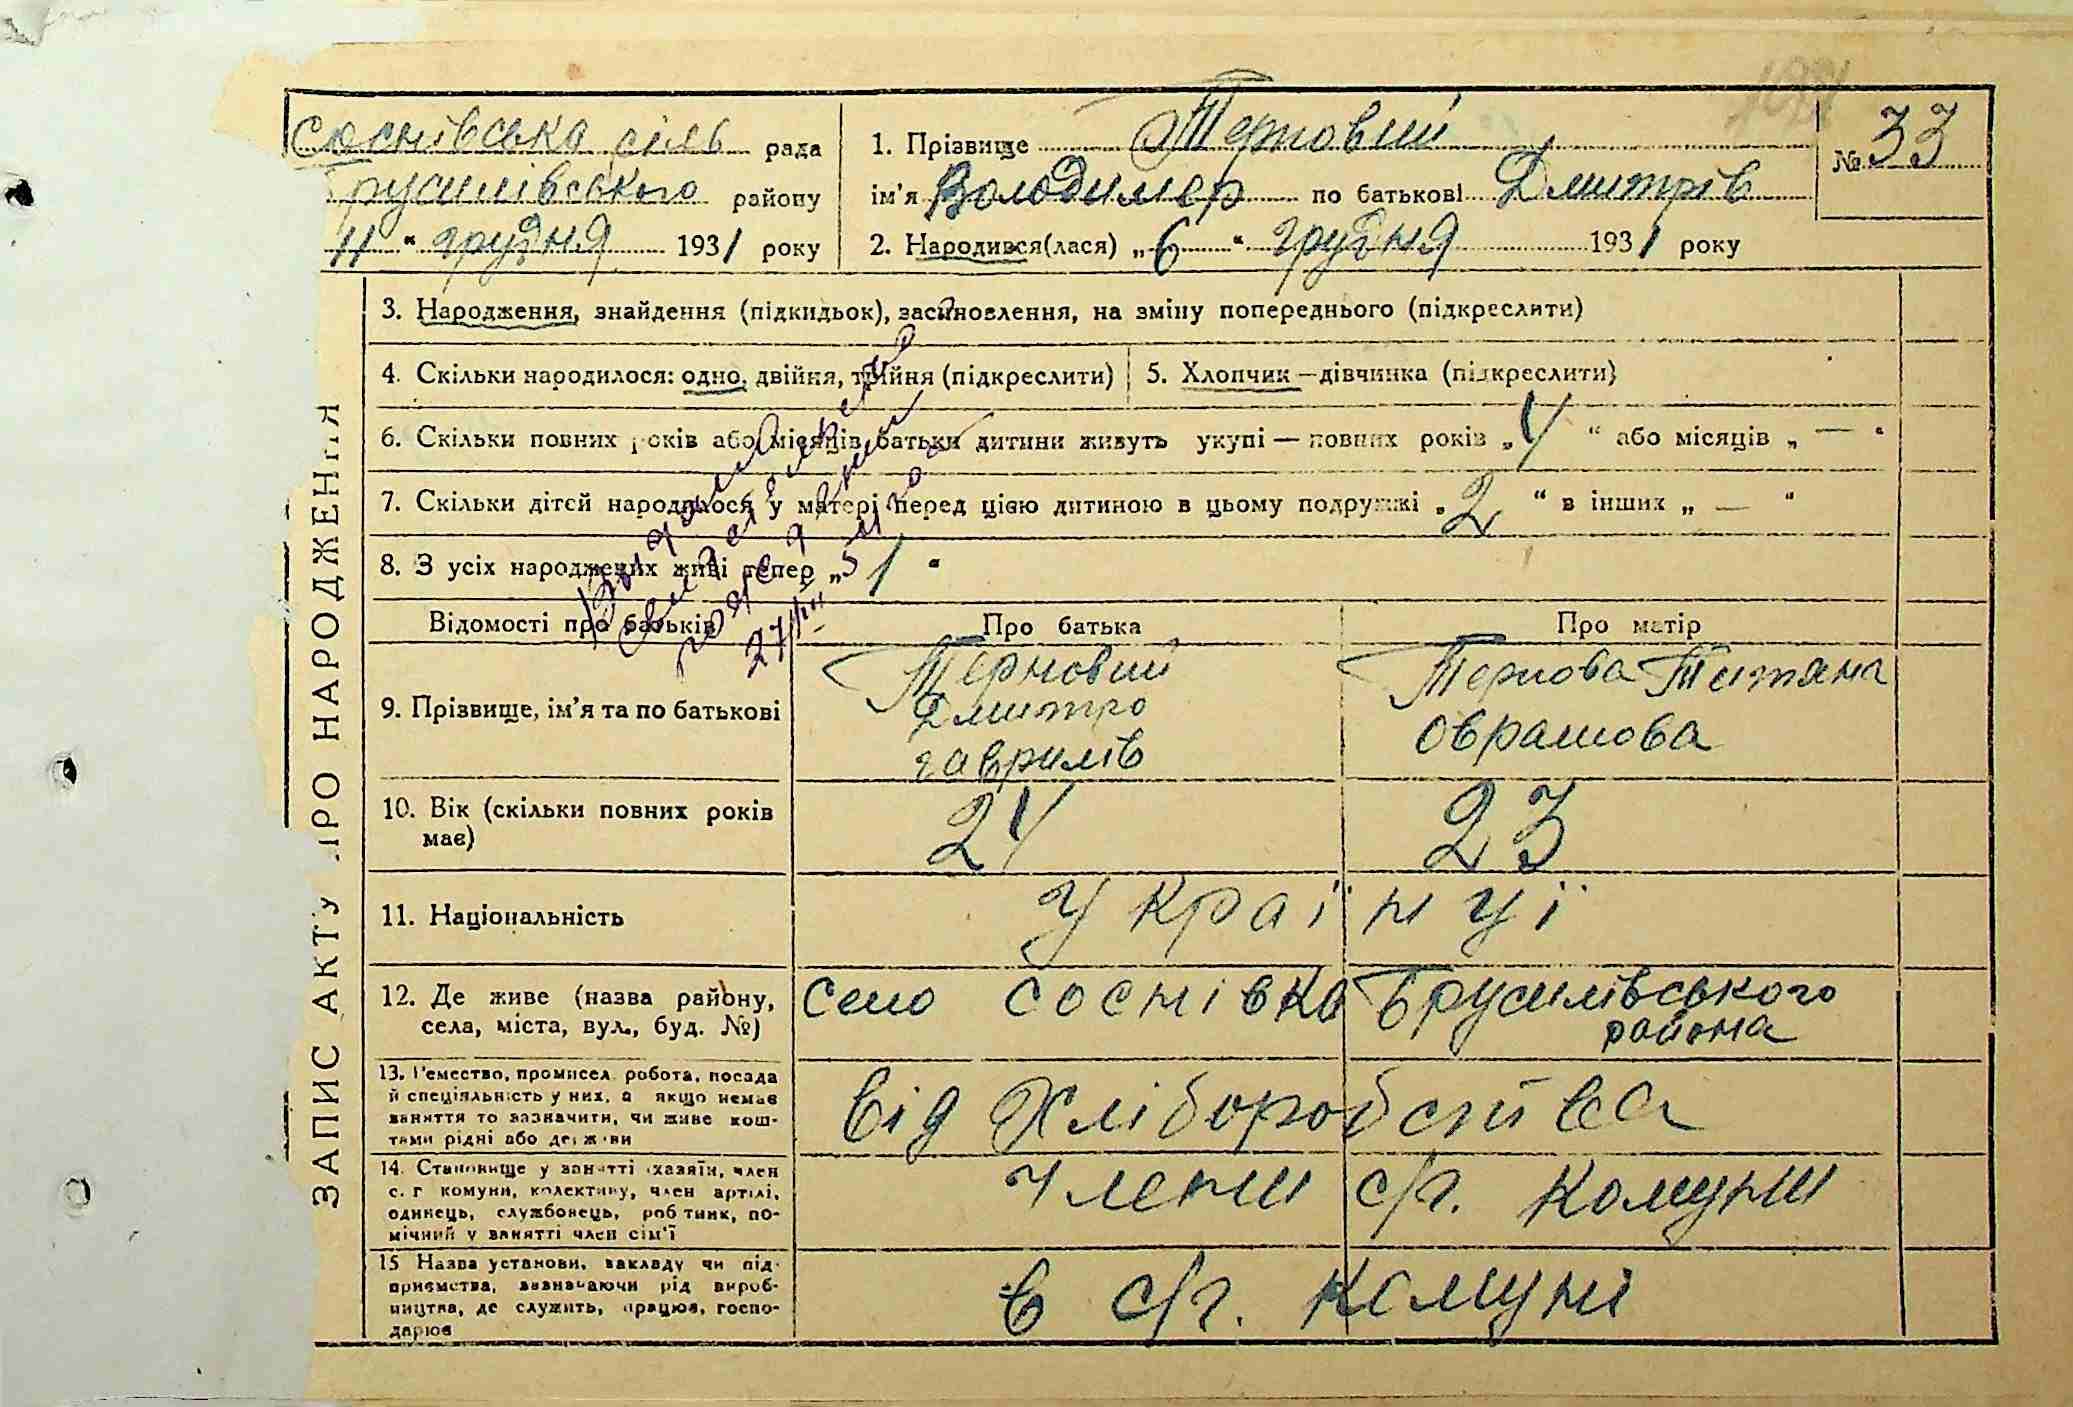 Соснівська сіль рада
Брусилівського району
"11" грудня 1931 року
1. Прізвище Терновий
ім'я Володимер по батькові Дмитрів
2. Народився(лася) „6" грудня 1931 року
№ 33
ЗАПИС АКТУ ПРО НАРОДЖЕННЯ
3. Народження, знайдення (підкидьок), засиновлення, на зміну попереднього (підкреслити)
4. Скільки народилося: одно, двійня, трійня (підкреслити)
5. Хлопчик—дівчинка (підкреслити)
6. Скільки повних років або місяців батьки дитини живуть укупі — повних років „4" або місяців „—"
7. Скільки дітей народилося у матері перед цією дитиною в цьому подружжі „2" в інших „—"
8. З усіх народжених живі тепер „1"
27/III
Відомості про батьків
Про батька
Про матір
9. Прізвище, ім'я та по батькові
Терновий
Дмитро
гаврилів
Тернова Титяна
Оврамова
10. Вік (скільки повних років
має)
24
23
11. Національність
Українці
12. Де живе (назва району,
села, міста, вул., буд. №)
Село Соснівка Брусилівського
района
13. Ремество, промисел, робота, посада
й спеціяльність у них, а якщо немає
заняття то зазначити, чи живе кош-
тами рідні або держави
від Хліборобства
14. Становище у занятті (хазяїн, член
с. г комуни, колективу, член артілі,
одинець, службовець, робітник, по-
мічний у занятті член сім'ї
члени с/г. Комуни
15 Назва установи, закладу чи під-
приємства, зазначаючи рід вироб-
ництва, де служить, працює, госпо-
дарює
в с/г. Комуні